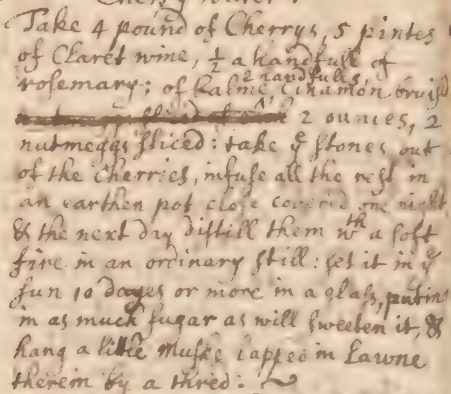 Cherry Water:
Take 4 pound of Cherrys, 5 pintes
of Claret wine, ½ a handfull of
rosemary; of balme 2 handfulls, Cinamon bruised
2 ounces, 2
nutmeggs sliced: take yᵉ stones out
of the Cherries, infuse all the rest in
an earthen pot close covered one night
& the next day distill them wth a soft
fire in an ordinary still: set it in yᵉ
sun 10 dayes or more in a glass, puting
in as much sugar as will sweeten it, &
hang a little muske lapped in Lawne
therein by a thred: